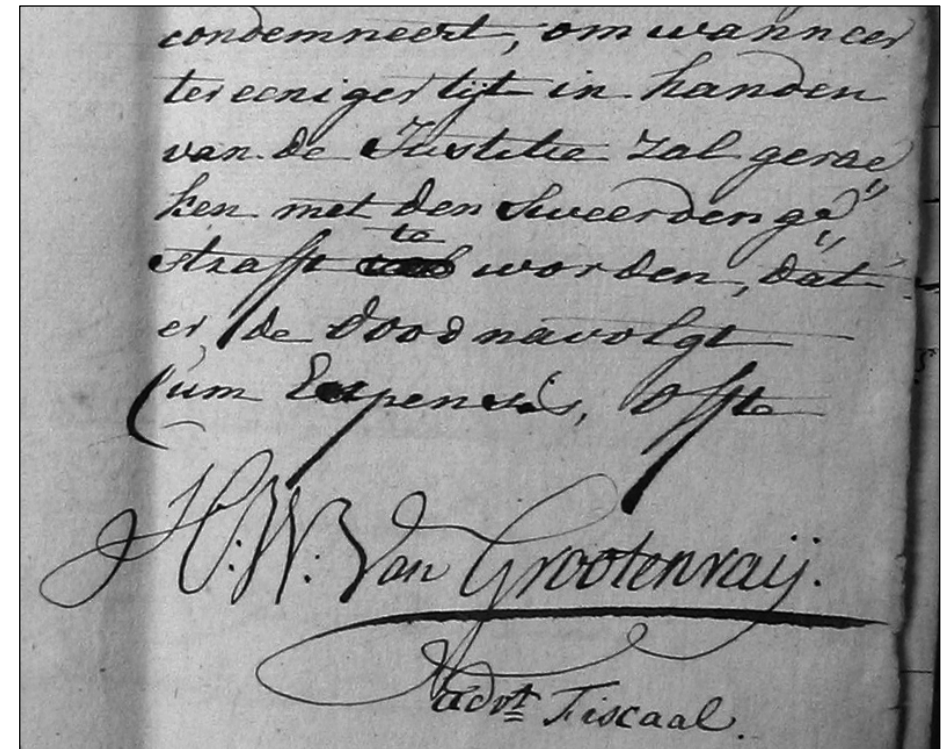 condemneert, om wanneer
ter eeniger tijt in handen
van de Justitie zal gerae„
ken met den Sweerden ge„
strafft te worden, dat
er de dood navolgt
Cum Expensis, offte
H: W: Van Grootenraij.
advt. Fiscaal.